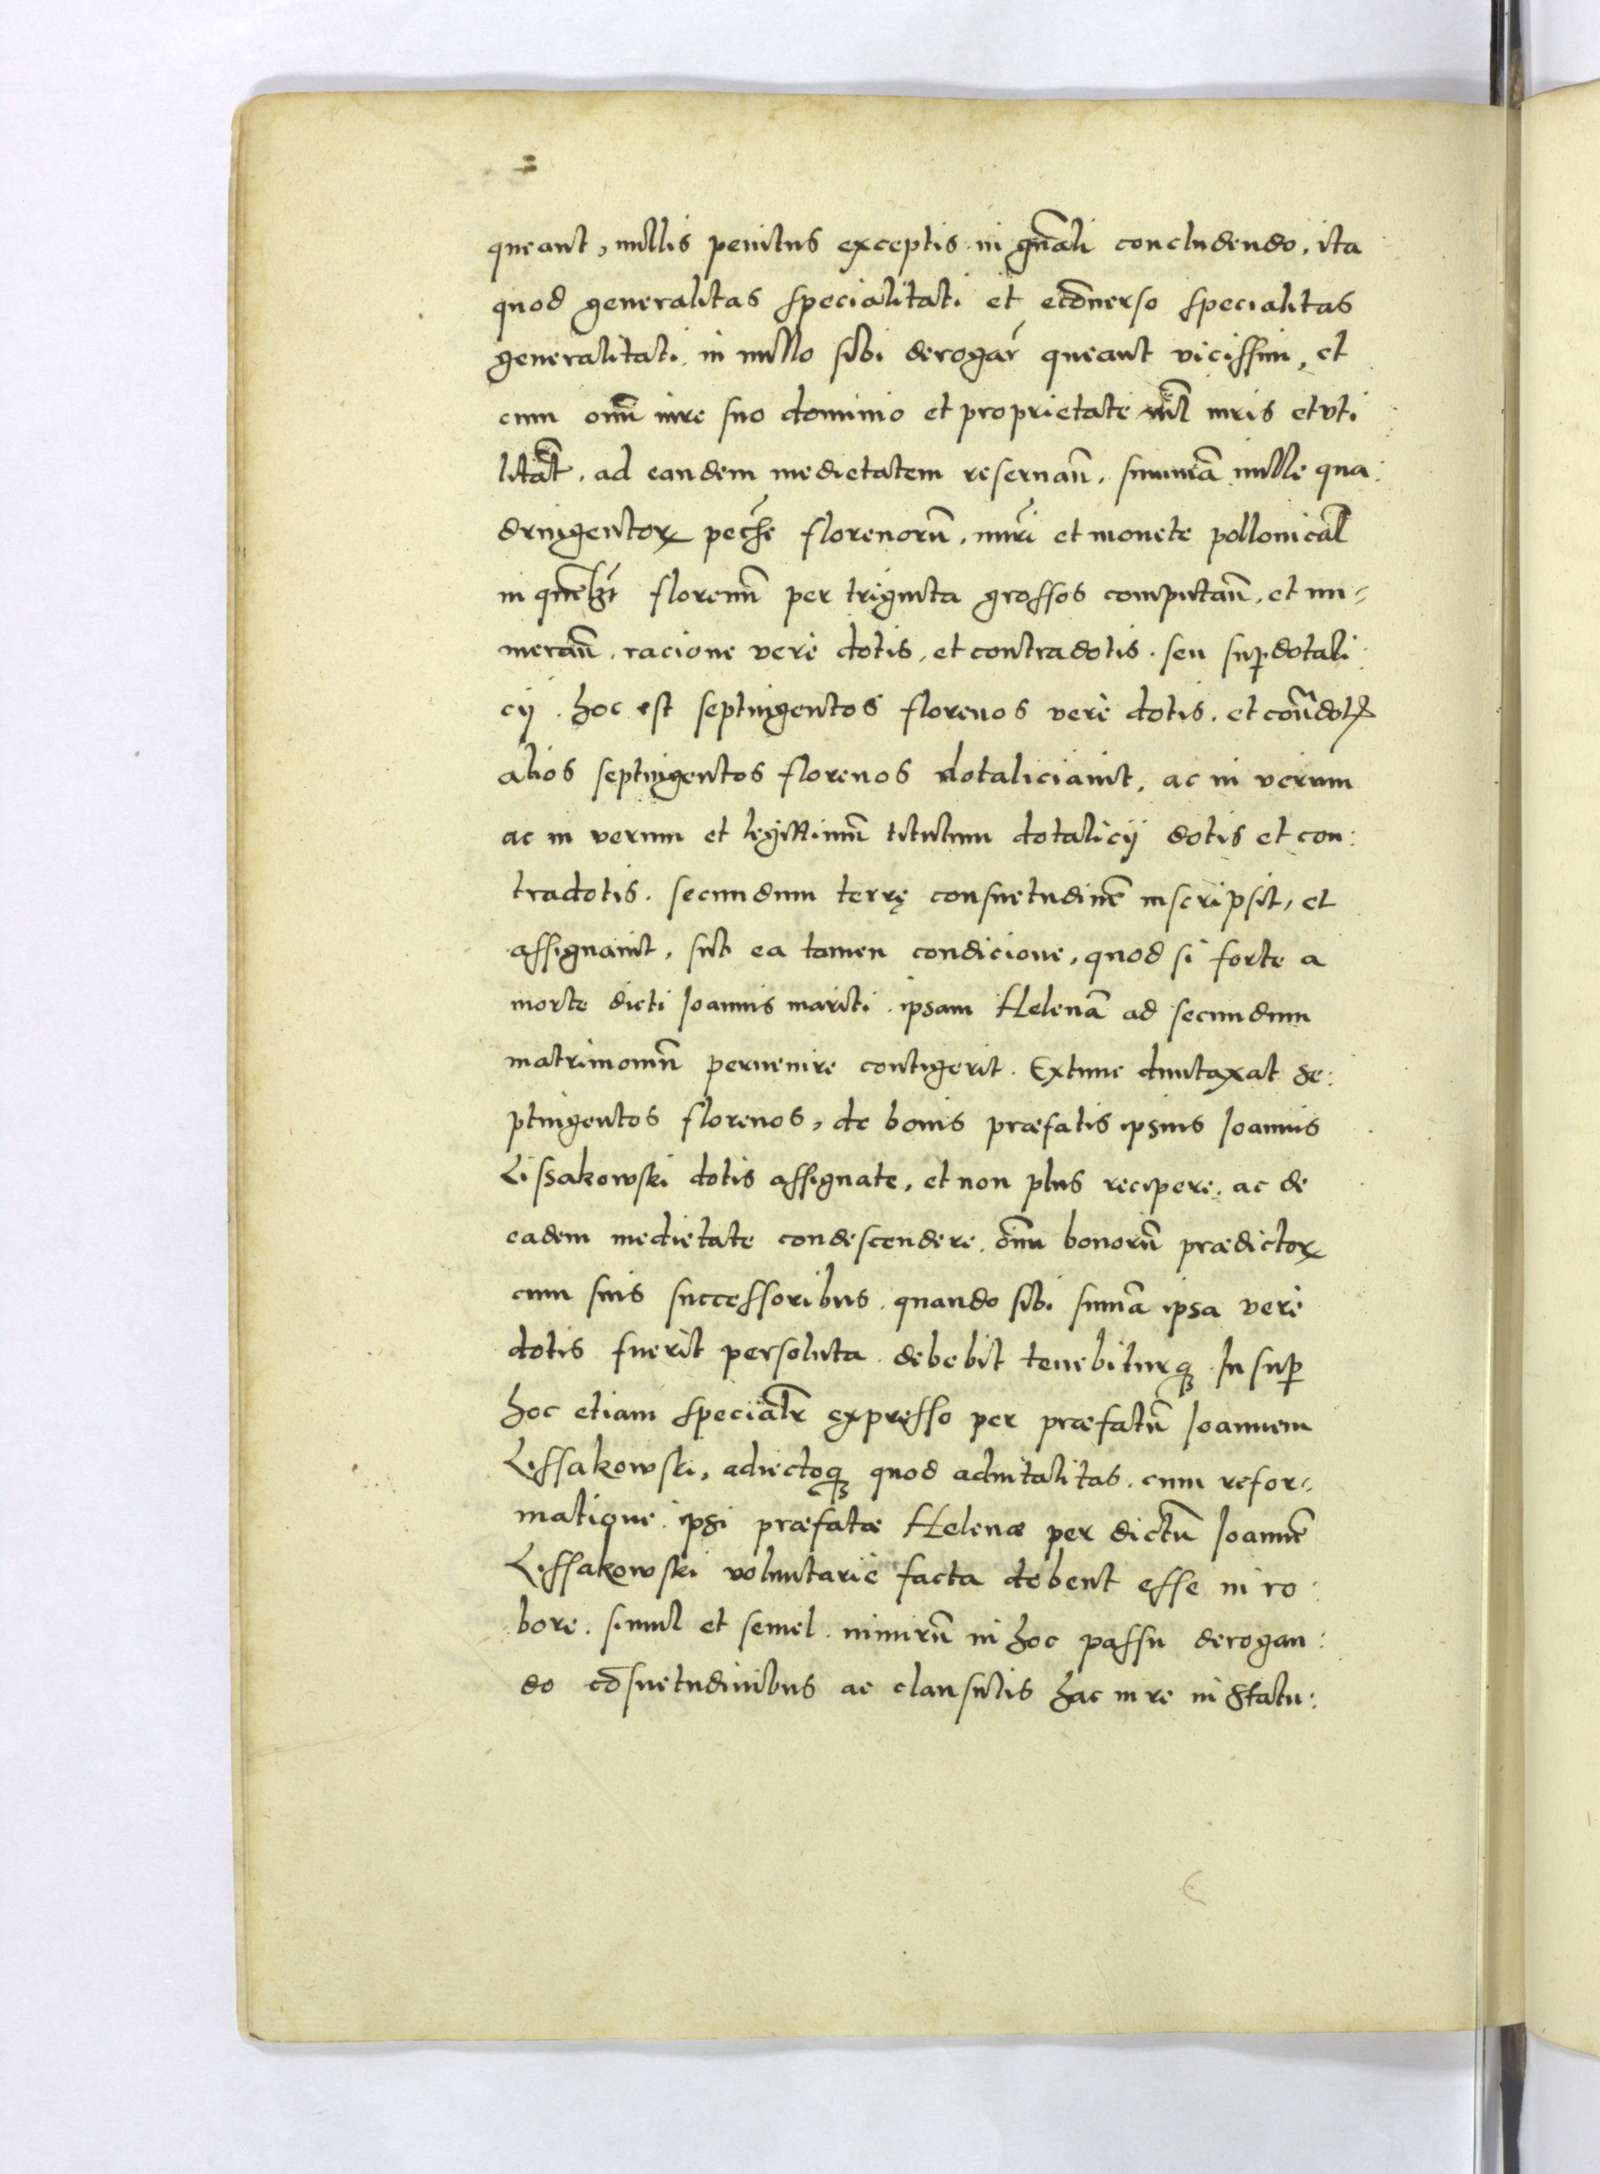 queant, nullis penitus exceptis in gnãli concludendo, ita
quod generalitas specialitati et ecõuerso specialitas
generalitati in nullo sibi derogar̃ queant vicissim, et
cum omĩ iure suo dominio et proprietate iuris et vti
litãt, ad eandem medietatem reseruañ, summã mille qua:
dringentoꝝ peccñe florenorũ, nuri et monete pollonicãl
in quẽlꝫt florenũ per triginta grossos computañ, et nu-
merañ, racione vere dotis, et contradotis. seu suꝑdotali
cij. hoc est septingentos florenos vere dotis, et cõtradotꝭ
alios septingentos florenos dotaliciauit, ac in verum
ac in verum et legittimũ titulum dotalicij dotis et con:
tradotis. secundum terrę consuetudinẽ inscripsit, et
assignauit, sub ea tamen condicione, quod si forte a
morte dicti Joannis mariti ipsam Helenã ad secundum
matrimoniũ peruenire contigerit. Extunc duntaxat se:
ptingentos florenos, de bonis præfatis ipsius Joannis
Lissakowski dotis assignate, et non plus recipere, ac de
eadem medietate condescendere, õmiu bonorũ prædictoꝝ
cum suis successoribus, quando sibi sumã ipsa vere
dotis fuerit persoluta debebit tenebiturqꝫ. Insuꝑ
hoc etiam speciãlr expresso per præfatũ Joannem
Lissakowski, adiectoqꝫ quod aduitalitas, cum refor-
matione ipsi præfatæ Helenæ per dictũ Joannẽ
Lissakowski voluntarie facta debent esse in ro:
bore. simul et semel. nimirũ in hoc passu derogan:
do cõsuetudinibus ac clausulis hac in re in statu: